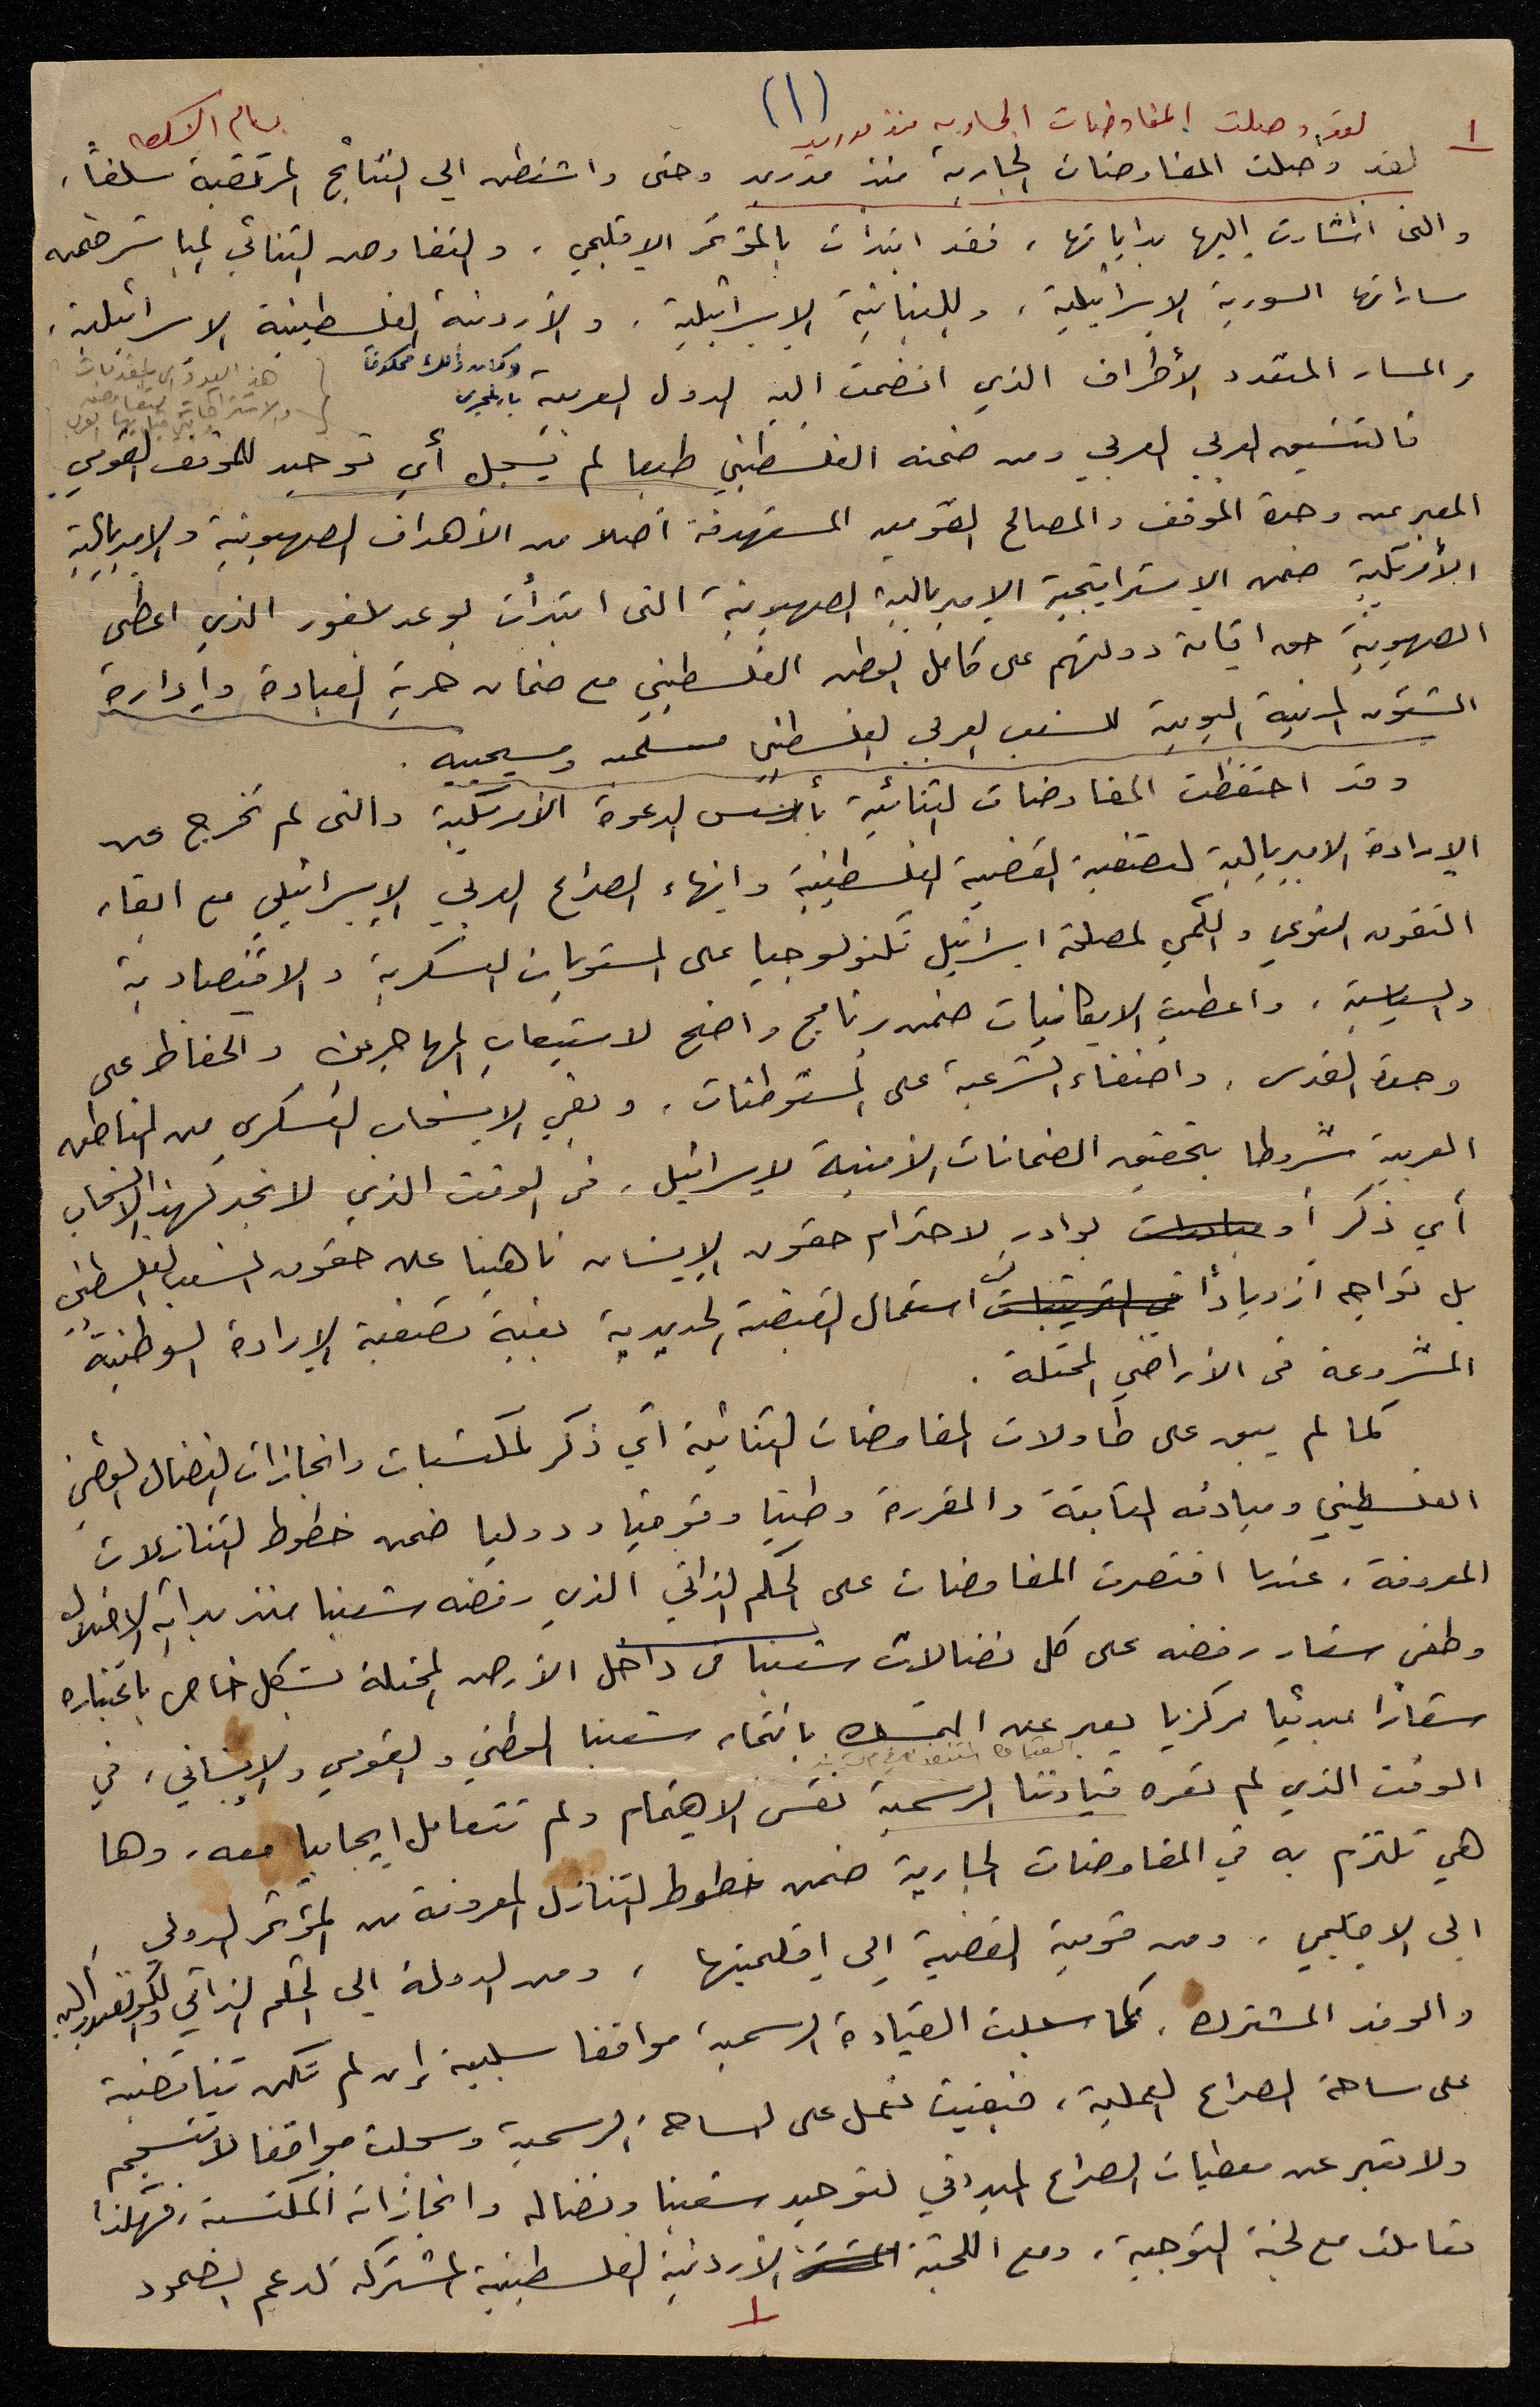 (١)
لقد وصلت المفاوضات الجارية منذ مدريد
بسام الشكعه
١
لقد وصلت المفاوضات الجارية منذ مدريد وحتى واشنطن الى النتائج المرتقبة سلفاً،
والتى أشارت إليها بداياتها، فقد ابتدأت بالمؤتمر الإقليمي، والتفاوض الثنائي المباشر ضمن
مساراتها السورية الإسرائيلية، واللبنانية الإسرائيلية، والأردنية الفلسطينية الإسرائيلية،
والمسار المتعدد الأطراف الذي انضمت اليه الدول العربية
وكان ذلك محكوماً
هذه
فالتنسيق العربي العربي ومن ضمنه الفلسطيني طبعا لم يسجل أي توحيد للموقف القومي
المعبر عن وحدة الموقف والمصالح القومية المستهدفة أصلا من الأهداف الصهيونية والإمبريالية
الأمريكية ضمن الإستراتيجية الإمبريالية الصهيونية التى ابتدأت بوعد بلفور الذي اعطى
الصهيونية حق اقامة دولتهم على كامل الوطن الفلسطيني مع ضمان حرية العبادة وإدارة
الشئون المدنية اليومية للشعب العربي الفلسطيني مسلمين ومسيحيين.
وقد احتفظت المفاوضات الثنائية بأسس الدعوة الأمريكية والتى لم تخرج عن
الإرادة الامبريالية لتصفية القضية الفلسطينية وإنهاء الصراع العربي الإسرائيلي مع ابقاء
التفوق النوعي والكمي لمصلحة اسرائيل تكنولوجيا على المستويات العسكرية والاقتصادية
والسياسية، واعطيت الإمكانيات ضمن برنامج واضح لاستيعاب المهاجرين والحفاظ على
وحدة القدس، واضفاء الشرعية على المستوطنات، وبقي الإنسحاب العسكري من المناطق
العربية مشروطا بتحقيق الضمانات الأمنية لإسرائيل، فى الوقت الذي لا نجد لهذا الانسحاب
أي ذكر أو بوادر لاحترام حقوق الإنسان ناهينا عن حقوق الشعب الفلسطيني
بل نواجه ازديادا فى استعمال القبضة الحديدية بغية تصفية الإرادة الوطنية
المشروعة فى الأراضي المحتلة.
كما لم يبق على طاولات المفاوضات الثنائية أي ذكر لمكتسبات وانجازات النضال الوطني
الفلسطيني ومبادئه الثابتة والمقررة وطنيا وقوميا ودوليا ضمن خطوط التنازلات
المعروفة، عندما اقتصرت المفاوضات على الحكم الذاتي الذي رفضه شعبنا منذ بداية الاحتلال
وطغى شعار رفضه على كل نضالات شعبنا فى داخل الأرض المحتلة بشكل خاص باعتباره
شعارا مبدئيا مركزيا يعبر عن التمسك بانتماء شعبنا الوطني والقومي والإنساني، في
الوقت الذي لم تعره قيادتنا الرسمية نفس الاهتمام ولم تتعامل ايجابيا معه، وها
هي تلتزم به في المفاوضات الجارية ضمن خطوط التنازل المعروفة من المؤتمر الدولي
الى الاقليمي، ومن قومية القضية الى إقليميتها، ومن الدولة الى الحكم الذاتي
والوفد المشترك، كما سجلت القيادة الرسمية مواقفا سلبية إن لم تكن تناقضية
على ساحة الصراع العملية، فبقيت تعمل على الساحة الرسمية وسجلت مواقفا لا تنسجم
ولا تعبر عن معطيات الصراع الميداني لتوحيد شعبنا ونضاله وانجازاته المكتسبة، فهكذا
تعاملت مع لجنة التوجيه، ومع اللجنة الأردنية الفلسطينية المشتركة لدعم الصمود
١